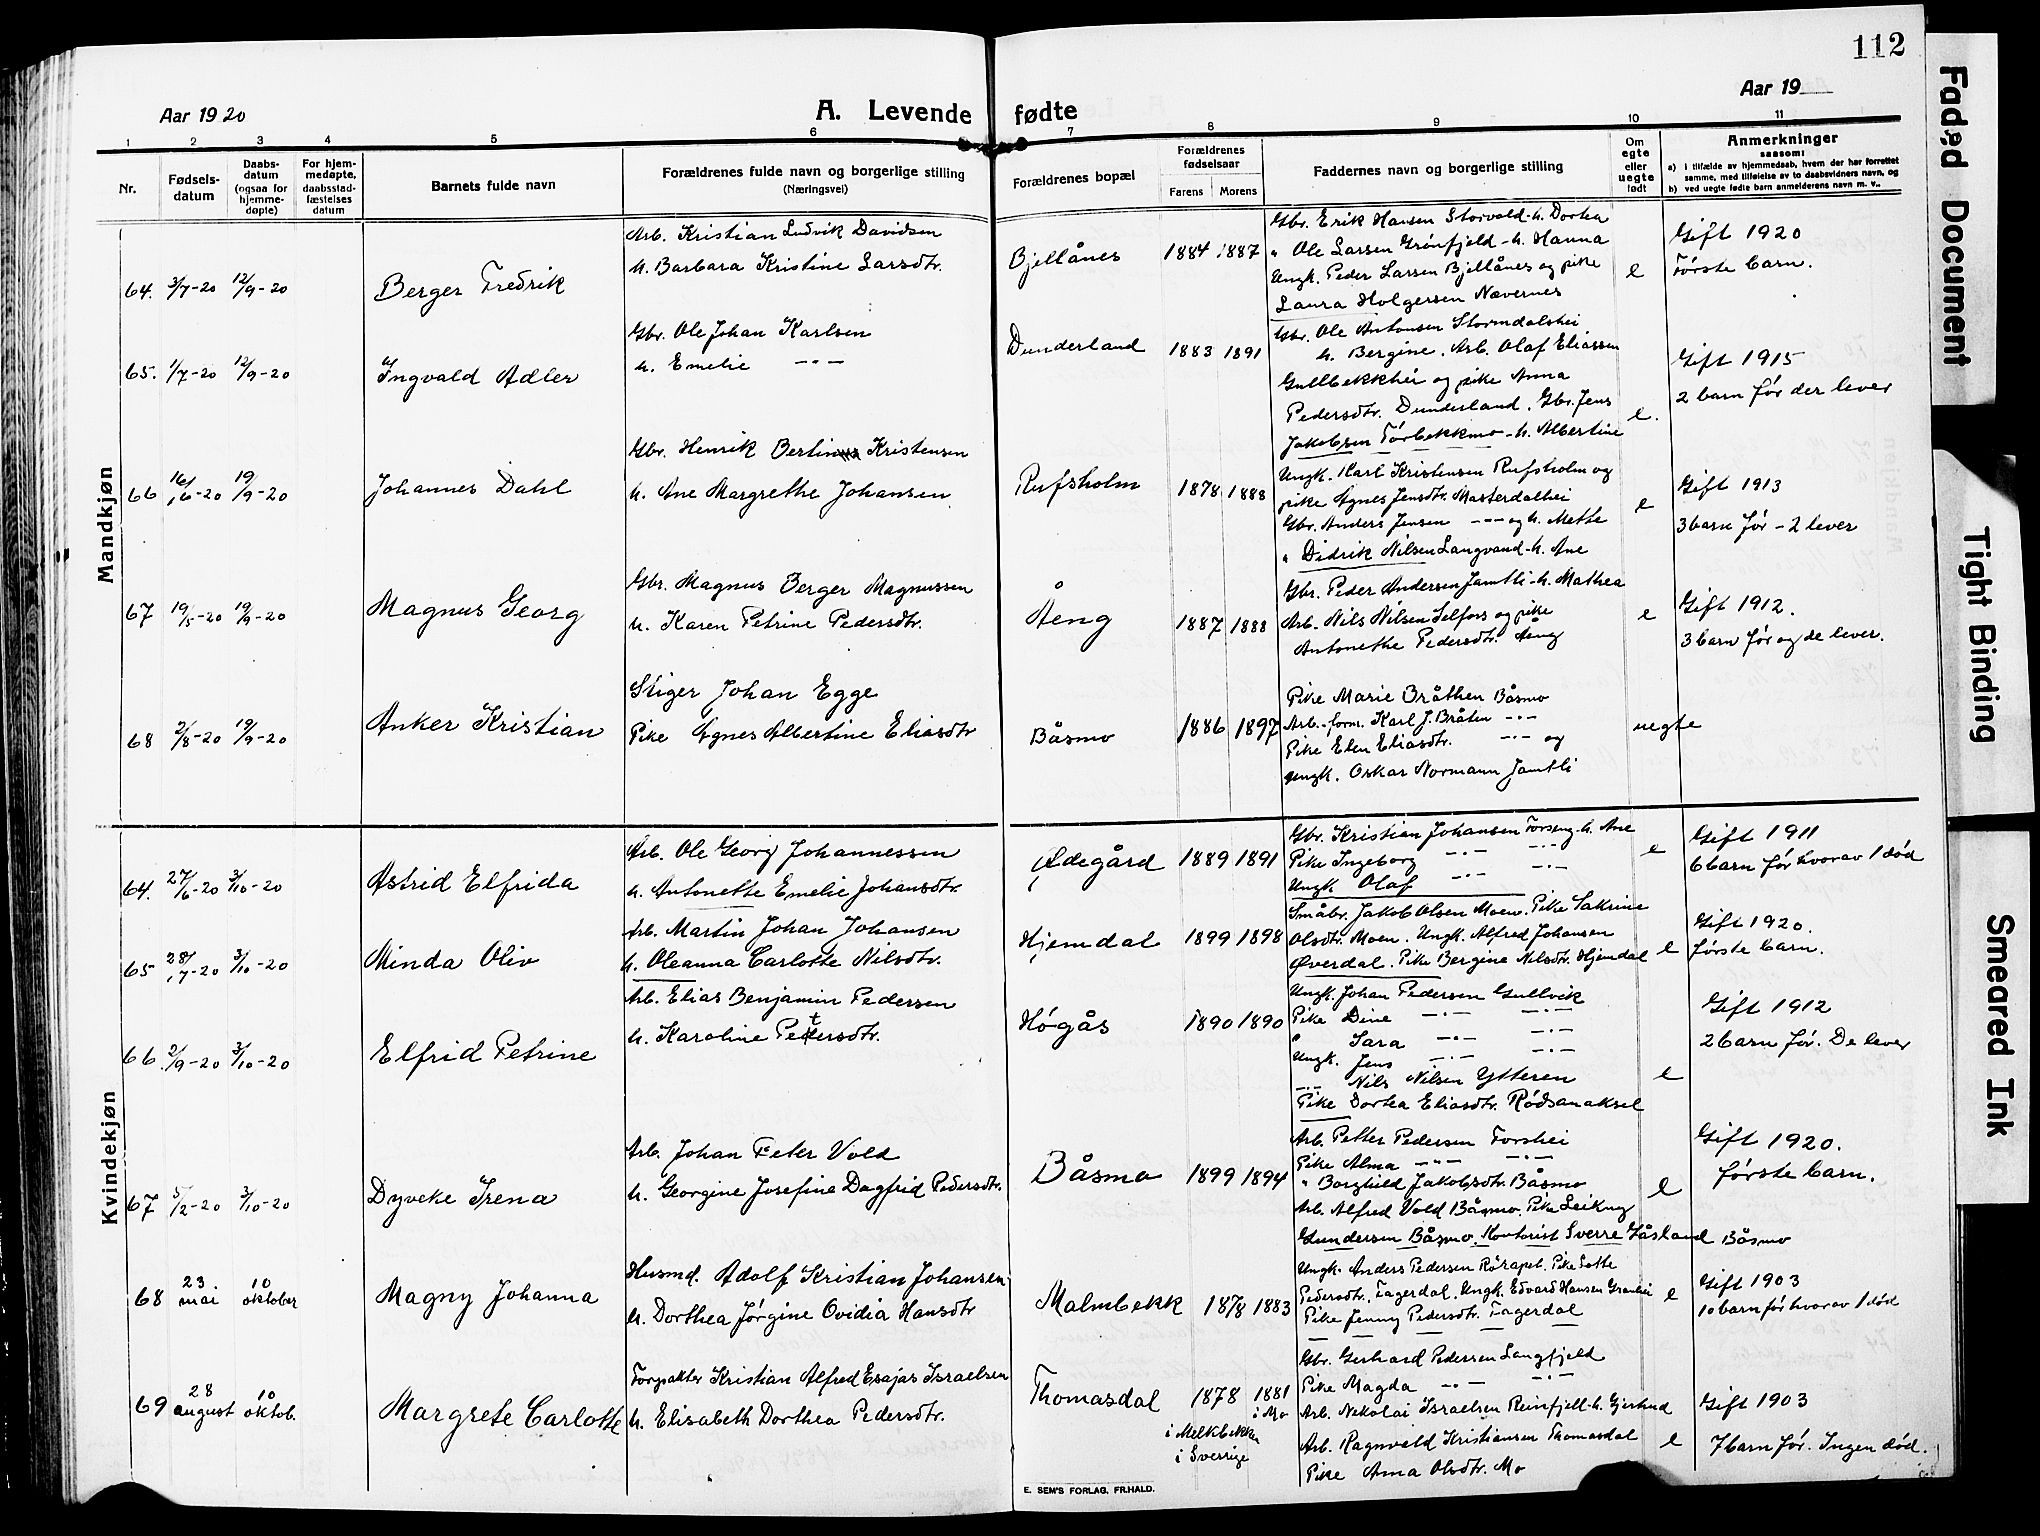 112
Aar 1920
A. Levende fødte
Aar 19
1 2 3 4 5 6 7 8 9 10 11
Nr.
Fødselsdatum
Daabsdatum (ogsaa for hjemmedøpte)
For hjemmedøpte, daabsstadfæstelses datum
Barnets fulde navn
Forældrenes fulde navn og borgerlige stilling
(Næringsvei)
Forældrenes bopæl
Forældrenes fødselsaar
Farens Morens
Faddernes navn og borgerlige stilling
Om egte eller uegte født
Anmerkninger
saasom:
a) i tilfælde av hjemmedaab, hvem der har forrettet samme, med tilføielse av to daabsvidners navn, og
b) ved uegte fødte barn anmelderens navn m. v..
Mandkjøn
64. 3/7-20 12/9-20 Berger Fredrik
Arb. Kristian Ludvik Davidsen
h. Barbara Kristine Larsdtr.
Bjellånes 1884 1887
Gbr. Erik Hansen Storvold-h. Dortea
" Ole Larsen Grønfjeld-h. Hanna
Ungk. Peder Larsen Bjellånes og pike
Laura Holgersen Nævernes
e
Gift 1920
Første barn.
65. 1/7-20 12/9-20 Ingvald Adler
Gbr. Ole Johan Karlsen
h. Emelie -"-
Dunderland 1883 1891
Gbr. Ole Antonsen Stormdalshei
h. Bergine. Arb. Olaf Eliassen
Gullbekkhei og pike Anna
Pedersdtr. Dunderland. Gbr. Jens
Jakobsen Tørbekkmo-h. Albertine
e.
Gift 1915
2 barn før der lever
66 16/6-20 19/9-20 Johannes Dahl
Gbr. Henrik Bertin Kristensen
h. Ane Margrethe Johansen
Rufsholm 1878 1888
Ungk. Karl Kristensen Rufsholm og
pike Agnes Jensdtr. Masterdalhei
Gbr. Anders Jensen -"- og h. Mette
" Didrik Nilsen Langvand-h. Ane
e
Gift 1913
3 barn før - 2 lever
67 19/5-20 19/9-20 Magnus Georg
Gbr. Magnus Berger Magnussen
h. Karen Petrine Pedersdtr.
Åeng 1887 1888
Gbr. Peder Andersen Jamtli-h. Mathea
Arb. Nils Nilsen Selfors og pike
Antonethe Pedersdtr. Åeng
e
Gift 1912.
3 barn før og de lever.
68 2/8-20 19/9-20 Anker Kristian
Stiger Johan Egge
Pike Agnes Albertine Eliasdtr
Båsmo 1886 1897
Pike Marie Bråthen Båsmo
Arb.-form. Karl J. Bråten -"-
Pike Elen Eliasdtr. -"- og
Ungk. Oskar Normann Jamtli
uegte
Kvindekjøn
64. 27/6-20 3/10-20 Astrid Elfrida
Arb. Ole Georg Johannessen
h. Antonette Emelie Johansdtr.
Ødegård 1889 1891
Gbr. Kristian Johansen Forseng-h. Ane
Pike Ingeborg -"- -"-
Ungk Olaf -"- -"-
e
Gift 1911
6 barn før hvorav 1 død
65 28/7-20 3/10-20 Minda Oliv
Arb. Martin Johan Johansen
h. Oleanna Carlotte Nilsdtr.
Hjemdal 1899 1898
Småbr. Jakob Olsen Moen. Pike Sakrine
Olsdtr. Moen. Ungk. Alfred Johansen
Øverdal. Pike Bergine Nilsdtr. Hjemdal
e
Gift 1920.
første barn.
66. 2/9-20 3/10-20 Elfrid Petrine
Arb. Elias Benjamin Pedersen
h. Karoline Pettersdtr.
Høgås 1890 1890
Ungk. Johan Pedersen Gullvik
Pike Dine -"- -"-
" Sara -"- -"-
Ungk. Jens -"- -"-
-"- Nils Nilsen Ytteren
Pike Dortea Eliasdtr. Rødsanaksel
e
Gift 1912
2 barn før. De lever
67 5/2-20 3/10-20 Dyveke Irena
Arb. Johan Peter Vold
h. Georgine Josefine Dagfrid Pedersdtr.
Båsmo 1899 1894
Arb. Petter Pedersen Forshei
Pike Alma -"- -"-
" Borghild Jakobsdtr. Båsmo
Arb. Alfred Vold Båsmo. Pike Leikny
Gundersen Båsmo. Kontorist Sverre Gåsland Båsmo
e
Gift 1920.
første barn.
68 23 mai 10 oktober Magny Johanna
Husmd. Adolf Kristian Johansen
h. Dorthea Jørgine Ovidia Hansdtr
Malmbekk 1878 1883
Ungk. Anders Pedersen Rørapet. Pike Lotte
Pedersdtr. Fagerdal. Ungk. Edvard Hansen Granhei
Pike Jenny Pedersdtr. Fagerdal
e
Gift 1903
10 barn før hvorav 1 død
69 28 august 10 oktob. Margrete Carlotte
Forpakter Kristian Alfred Esajas Israelsen
h. Elisabeth Dorthea Pedersdtr.
Thomasdal 1878 i Melkbekken i Sverrige 1881 i Mo
Gbr. Gerhard Pedersen Langfjeld
Pike Magda -"- -"-
Arb. Nikolai Israelsen Reinfjell-h. Gjertrud
Arb. Ragnvald Kristiansen Thomasdal
Pike Anna Olsdtr. Mo
e
Gift 1903
7 barn før. Ingen død.
E. SEM'S FORLAG, FR.HALD.
Faded Document
Tight Binding
Smeared Ink